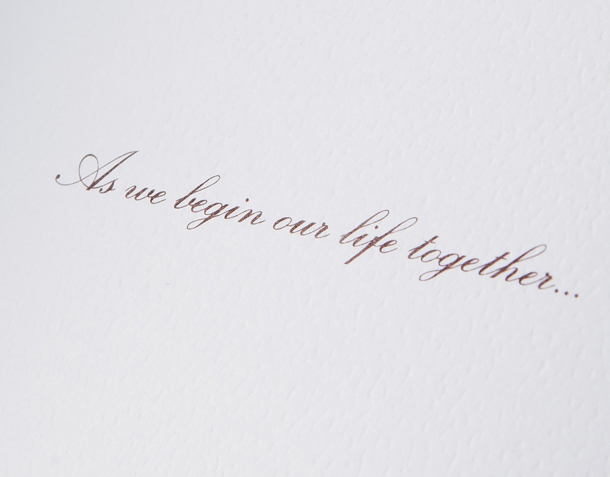 As we begin our life together...